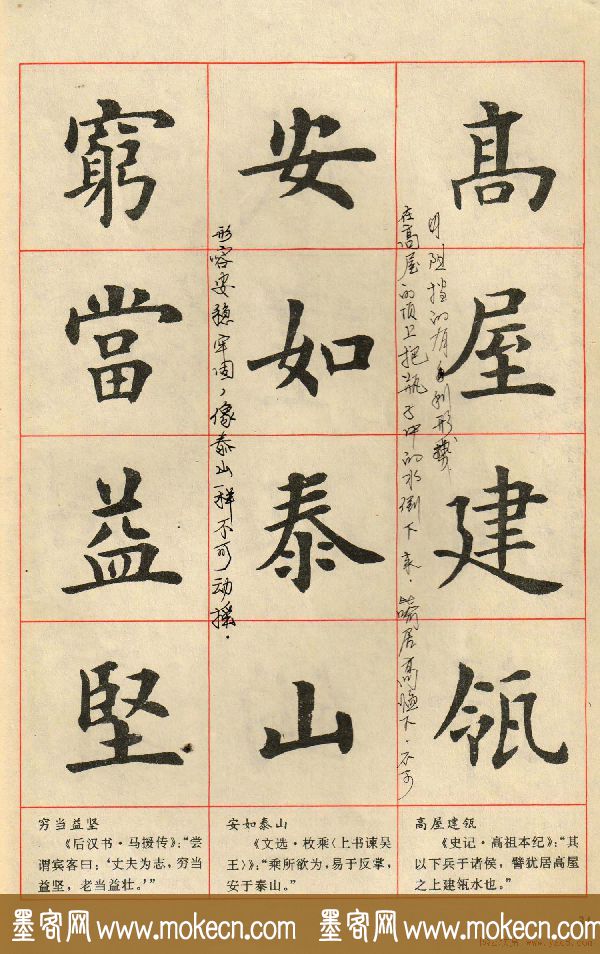 高屋建瓴
在高屋的顶上把瓶子中的水倒下来.喻居高临下.不可
阻挡的有利形势
安如泰山
形容安稳牢固,像泰山一样不可动摇.
窮當益堅
高屋建瓴
《史记·高祖本纪》:“其
以下兵于诸侯,譬犹居高屋
之上建瓴水也。”
安如泰山
《文选·枚乘〈上书谏吴
王〉》:“乘所欲为,易于反掌,
安于泰山。”
穷当益坚
《后汉书·马援传》:“尝
谓宾客曰:‘丈夫为志,穷当
益坚,老当益壮。’”
墨客网 www.mokecn.com 墨客网 www.mokecn.com